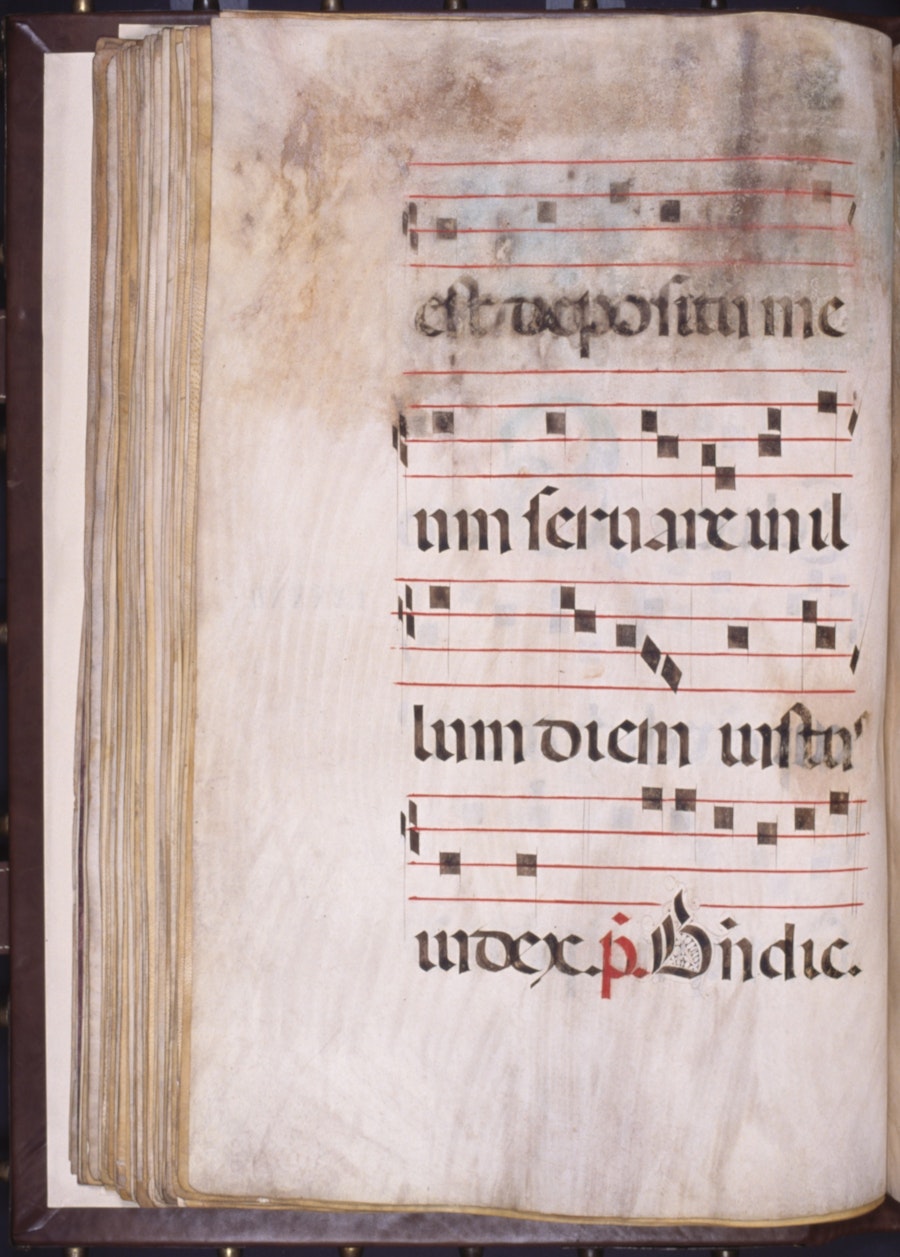 est depositu me
um seruare in il
lum diem iustu'
iudex. p̄. Bn̄dic.